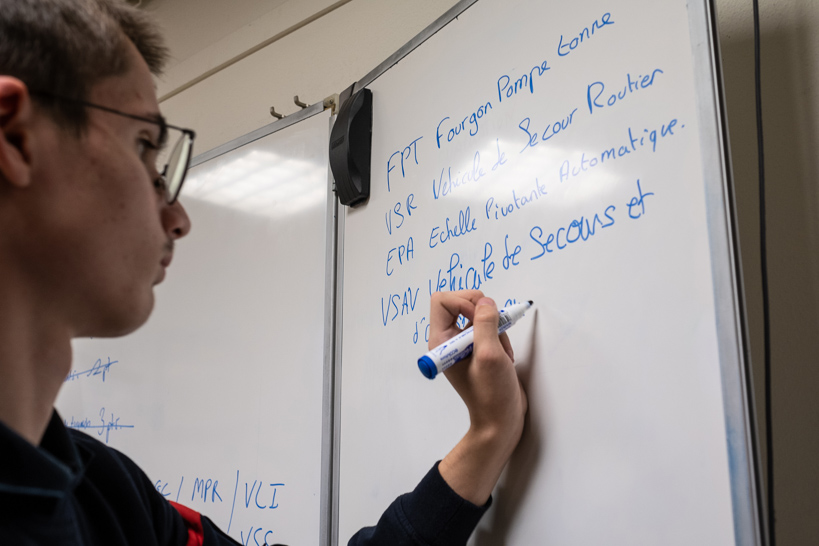 FPT Fourgon Pompe tonne
VSR Vehicule de Secour Routier
EPA Echelle Pivotante Automatique.
VSAV Vehicule de Secours et
3pts.
/ MPR / VLI